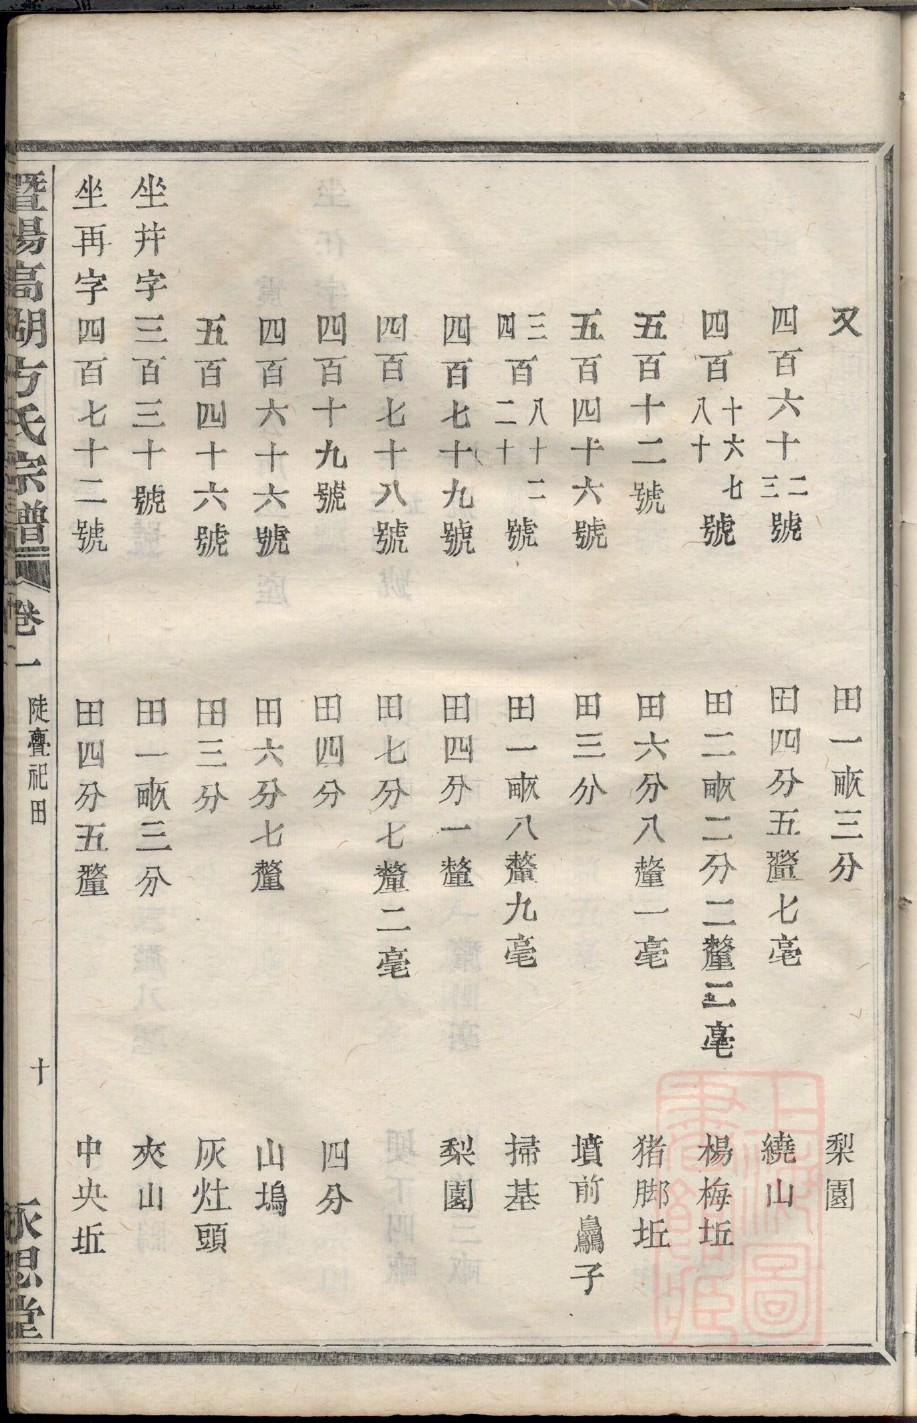 又 田一畝三分 梨園
四百六十二三號 田四分五釐七毫 繞山
四百十六七八十號 田二畝二分二釐三毫 楊梅坵
五百十二號 田六分八釐一毫 猪脚坵
五百四十六號 田三分 墳前 子
三四百八十二二十號 田一畝八釐九毫 掃基
四百七十九號 田四分一釐 梨園
四百七十八號 田七分七釐二毫
四百十九號 田四分 四分
四百六十六號 田六分七釐 山塢
五百四十六號 田三分 灰灶頭
坐井字三百三十號 田一畝三分 夾山
坐再字四百七十二號 田四分五釐 中央坵
暨陽高湖方氏宗譜 卷一 陡亹祀田 十 永思堂